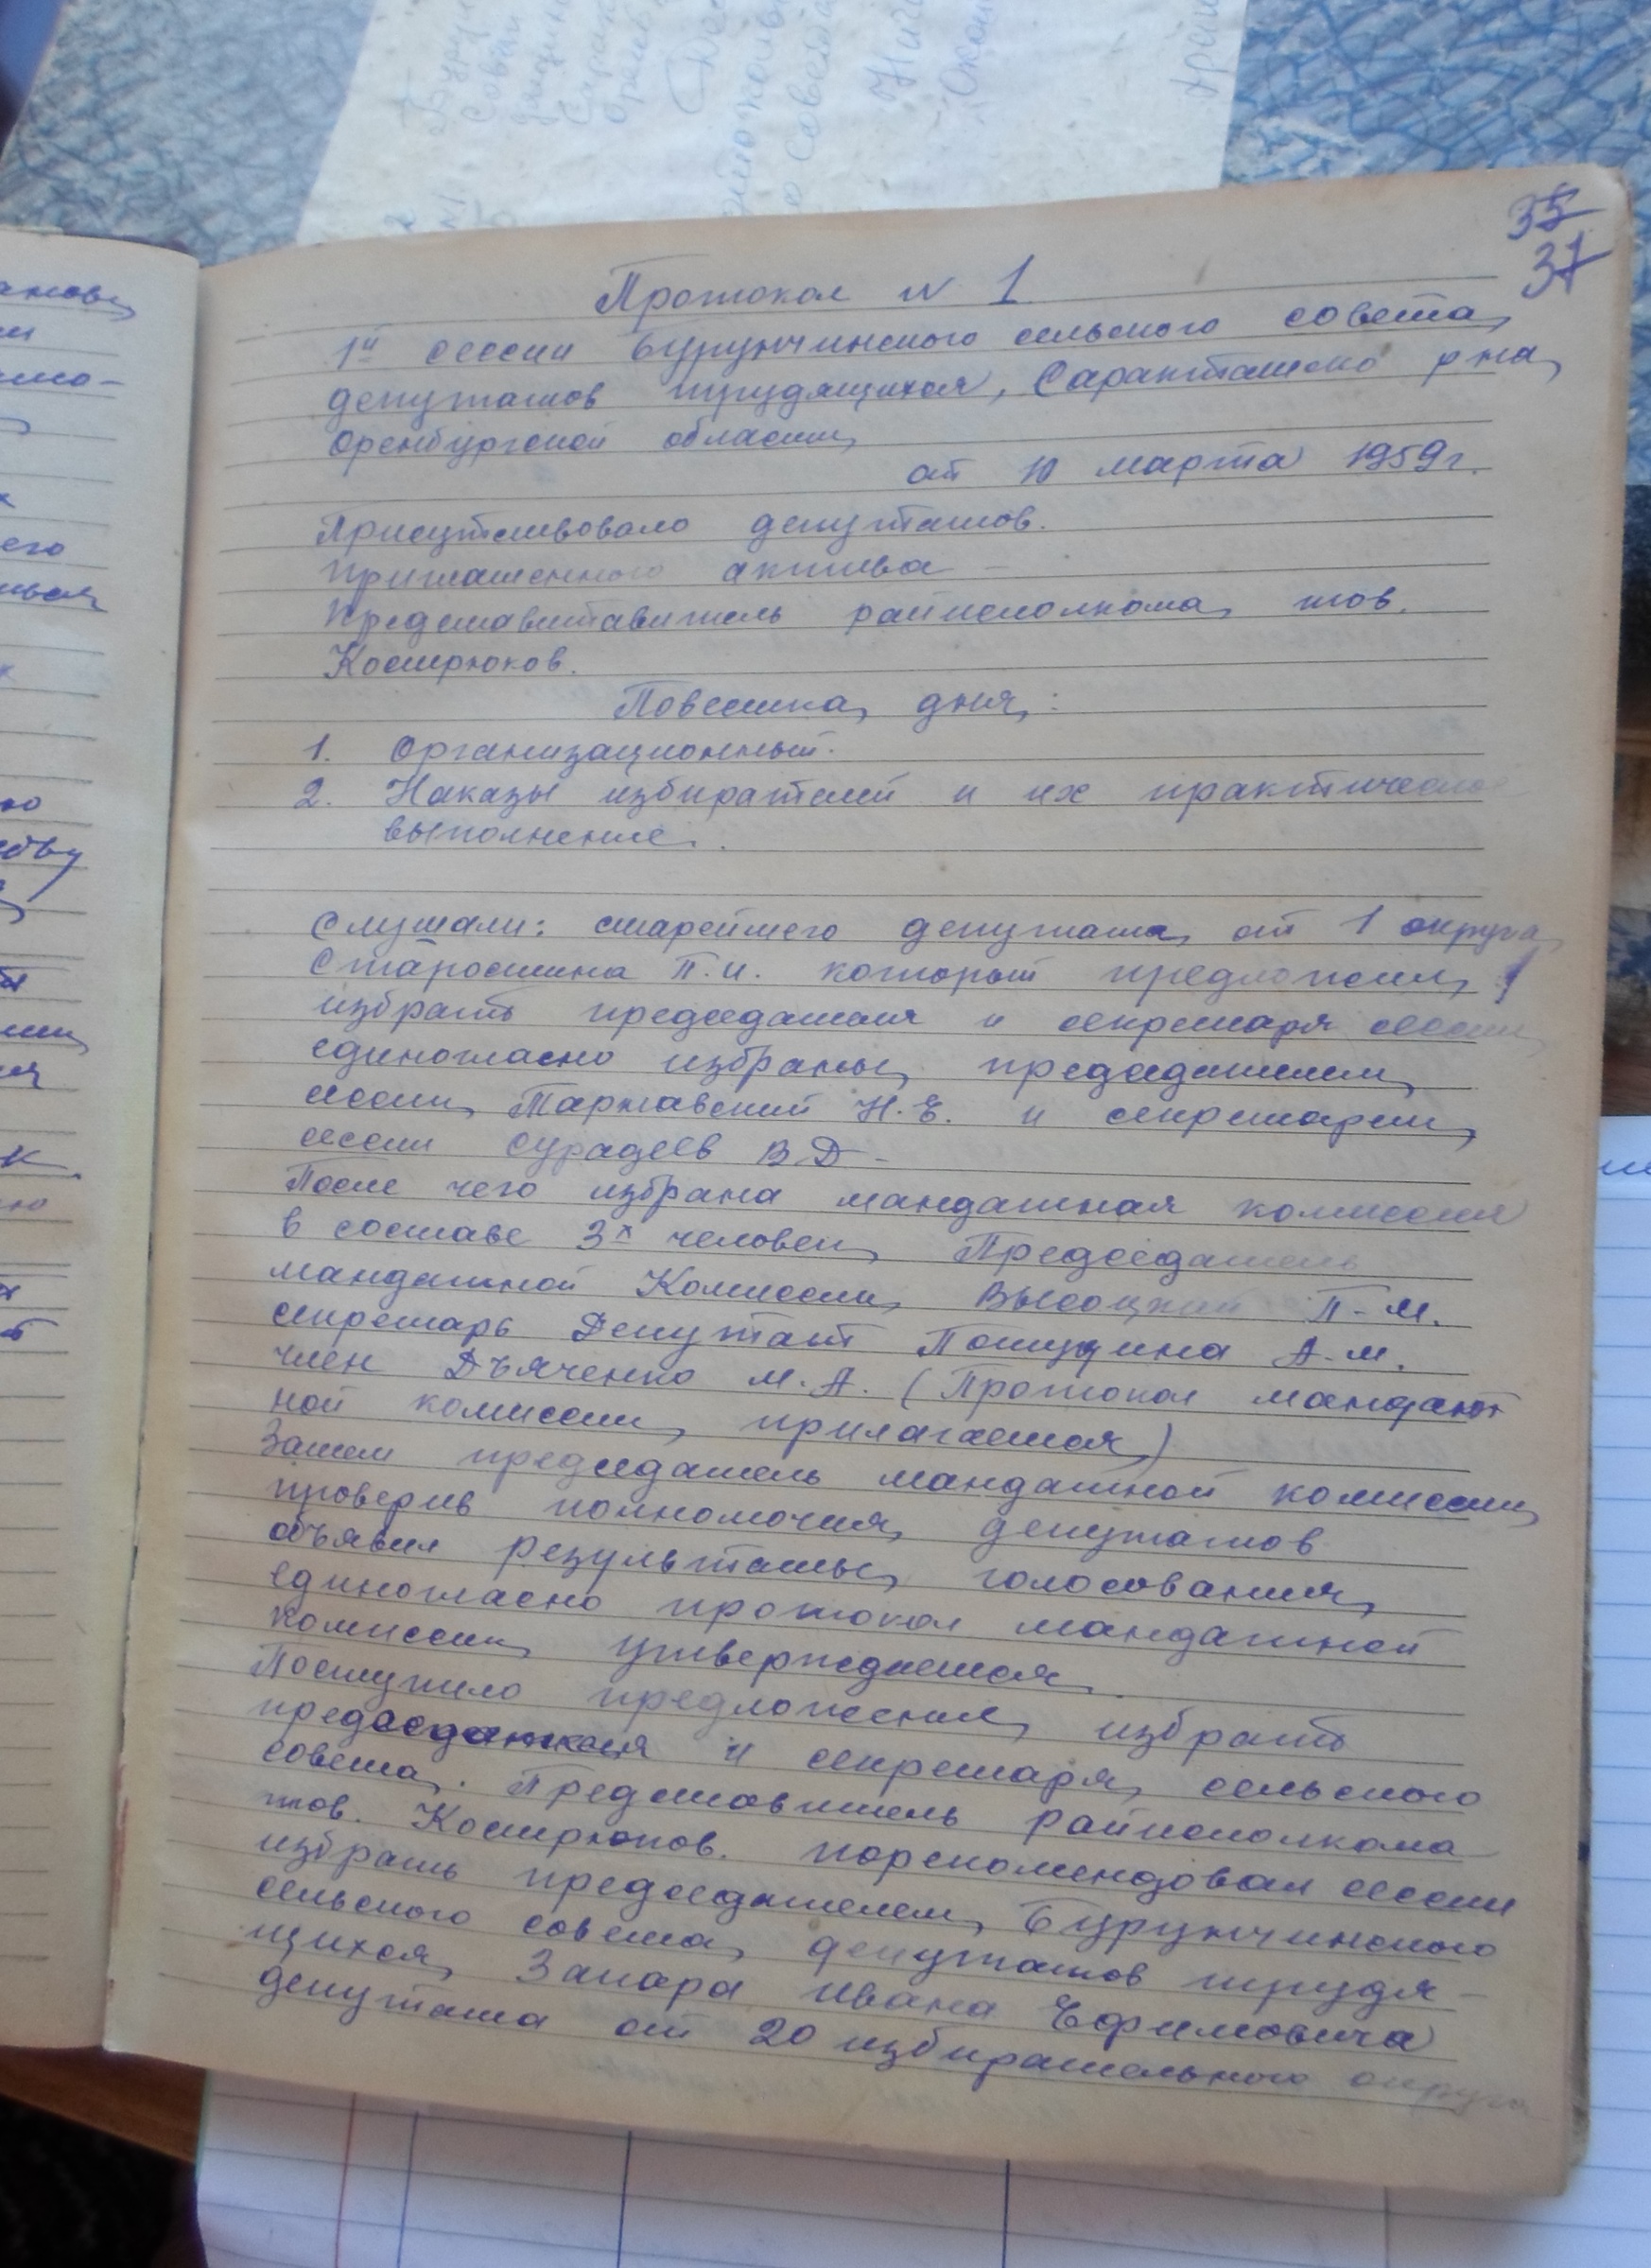 35
37
Протокол № 1
1й сессии Бурунчинского сельского совета
депутатов трудящихся, Саракташско р на
Оренбургской области
от 10 марта 1959 г.
Присутствовало депутатов.
Приглашенного актива -
Представитавитель райисполкома тов.
Кострюков.
Повестка дня:
1. Организационный.
2. Наказы избирателей и их практическо
выполнение.
Слушали: старейшего депутата от 1 округа
Старостина П.И. который предложил
избрать председателя и секретаря сессии
единогласно избраны председателем
сессии Таржавский Н.Е. и секретарем
сессии Сурадеев В Д -
После чего избрана мандатная комиссия
в составе 3х человек Председатель
мандатной Комиссии Высоцкий П-М.
секретарь Депутат А-М.
член Дьяченко М.А. (Протокол мандат
ной комиссии прилагается)
Затем председатель мандатной комиссии
проверив полномочия депутатов
объявил результаты голосования
единогласно протокол мандатной
комиссии утверждается.
Поступило предложения избрать
председателя и секретаря сельского
совета. Представитель райисполкома
тов. Кострюков. порекомендовал сессии
избрать председателем Бурунчинского
сельского совета депутатов трудя-
щихся Запара Ивана Ефимовича
депутата от 20 избирательного округа